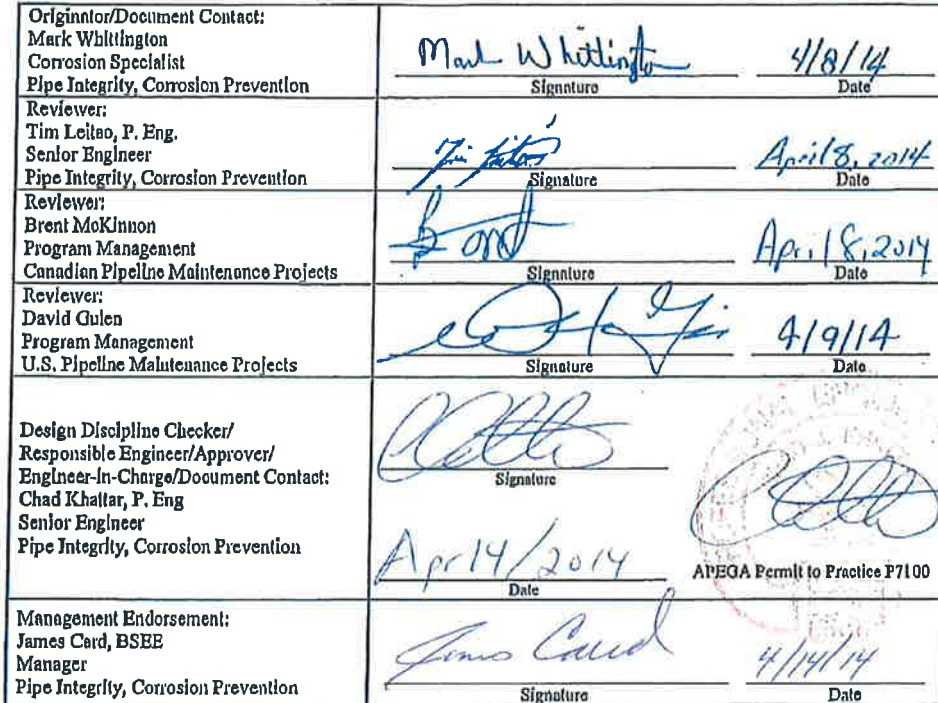 Originator/Document Contact:
Mark Whittington
Corrosion Specialist
Pipe Integrity, Corrosion Prevention
Mark Whittington
4/8/14
Signature
Date
Reviewer:
Tim Leitao, P. Eng.
Senior Engineer
Pipe Integrity, Corrosion Prevention
April 8, 2014
Signature
Date
Reviewer:
Brent McKinnon
Program Management
Canadian Pipeline Maintenance Projects
April 8, 2014
Signature
Date
Reviewer:
David Gulen
Program Management
U.S. Pipeline Maintenance Projects
4/9/14
Signature
Date
Design Discipline Checker/
Responsible Engineer/Approver/
Engineer-In-Charge/Document Contact:
Chad Khattar, P. Eng
Senior Engineer
Pipe Integrity, Corrosion Prevention
Signature
Apr 14/2014
Date
APEGA Permit to Practice P7100
Management Endorsement:
James Card, BSEE
Manager
Pipe Integrity, Corrosion Prevention
James Card
4/14/14
Signature
Date